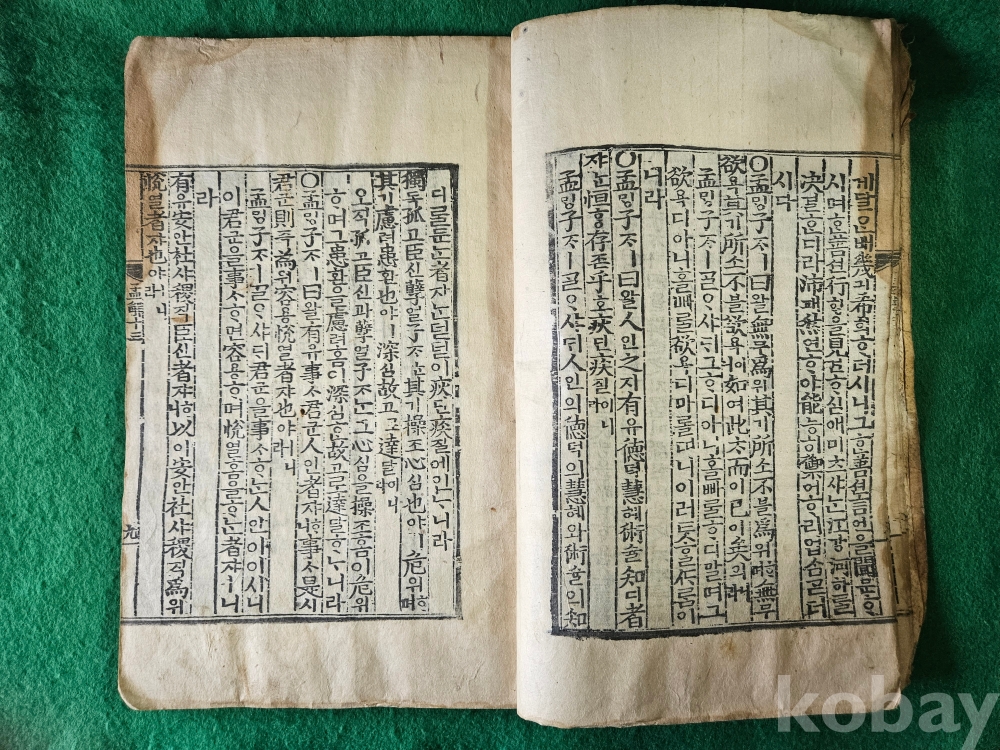 게달온배幾긔希희ᄒᆞ더시니그ᄒᆞᆫ善션言언을聞문ᄒᆞ
시며ᄒᆞᆫ善션行ᄒᆡᆼ을見견ᄒᆞ심애미츠샤ᄂᆞᆫ江강河하를
決결ᄒᆞᆫ디라沛패然연ᄒᆞ야能능히禦어ᄒᆞ리업ᄉᆞᆷᄀᆞᆮ더
시다
○孟ᄆᆡᆼ子ᄌᆞㅣ曰왈無무爲위其기所소不블爲위ᄒᆞ며無무
欲욕其기所소不블欲욕이니如여此ᄎᆞ而이已이矣의니라
孟ᄆᆡᆼ子ᄌᆞㅣᄀᆞᆯᄋᆞ샤ᄃᆡ그ᄒᆞ디아니ᄒᆞᆯ빼를ᄒᆞ디말며그
欲욕디아니ᄒᆞᆯ빼를欲욕디마롤띠니이러ᄐᆞᆺᄒᆞᆯᄯᆞ름이
니라
○孟ᄆᆡᆼ子ᄌᆞㅣ曰왈人인之지有유德덕慧혜術슐知디者
쟈ᄂᆞᆫ恒ᄒᆞᆼ存존乎호疢딘疾질이니라
孟ᄆᆡᆼ子ᄌᆞㅣᄀᆞᆯᄋᆞ샤ᄃᆡ人인의德덕의慧혜와術슐의知
디를둔ᄂᆞᆫ者쟈ᄂᆞᆫ덛덛이疢딘疾질에인ᄂᆞ니라
獨독孤고臣신孼얼子ᄌᆞㅣ其기操조心심也야ㅣ危위ᄒᆞ며
其기慮려患환也야ㅣ深심故고로達달이니라
오직孤고臣신과孼얼子ᄌᆞᄂᆞᆫ그心심을操조홈이危위
ᄒᆞ며그患환을慮려홈이深심ᄒᆞᆫ故고로達달ᄒᆞᄂᆞ니라
○孟ᄆᆡᆼ子ᄌᆞㅣ曰왈有유事ᄉᆞ君군人인者쟈ᄒᆞ니事ᄉᆞ是시
君군則즉爲위容용悅열者쟈也야ㅣ니라
孟ᄆᆡᆼ子ᄌᆞㅣᄀᆞᆯᄋᆞ샤ᄃᆡ君군을事ᄉᆞᄒᆞᄂᆞᆫ人인이이시니
이君군을事ᄉᆞᄒᆞ면容용ᄒᆞ며悅열홈을ᄒᆞᄂᆞᆫ者쟈ㅣ니
라
有유安안社샤稷직臣신者쟈ᄒᆞ니以이安안社샤稷직爲위
悅열者쟈也야ㅣ니라
孟解十三
九
kobay